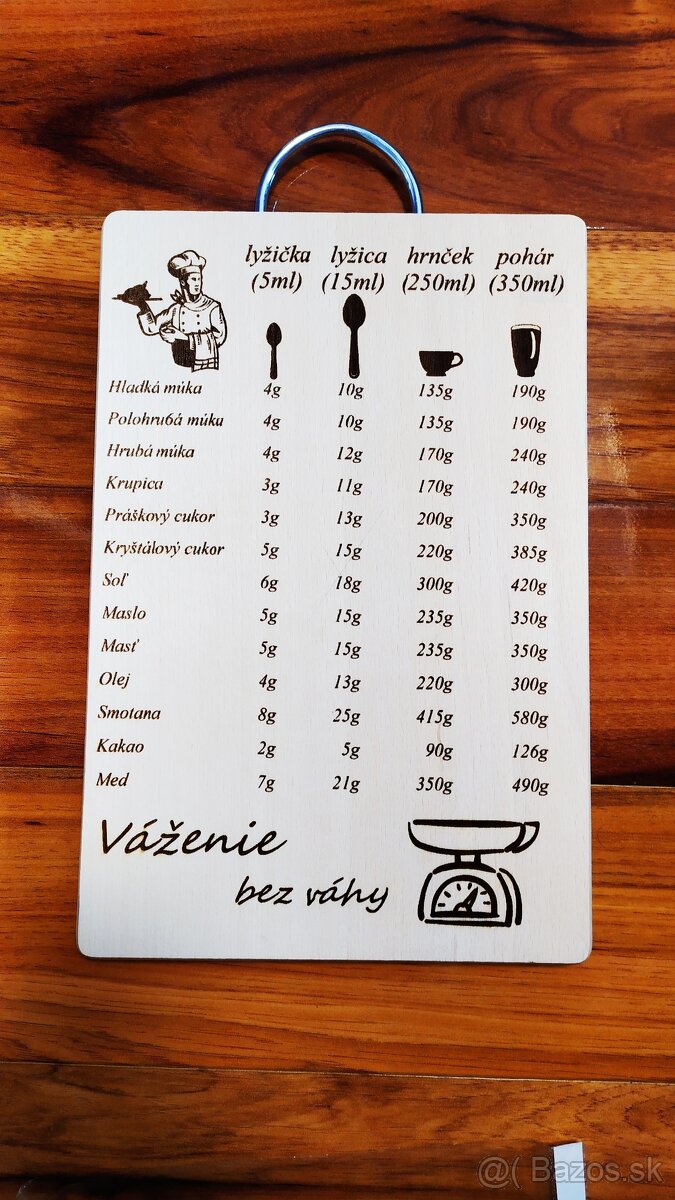 lyžička lyžica hrnček pohár
(5ml) (15ml) (250ml) (350ml)
Hladká múka 4g 10g 135g 190g
Polohrubá múka 4g 10g 135g 190g
Hrubá múka 4g 12g 170g 240g
Krupica 3g 11g 170g 240g
Práškový cukor 3g 13g 200g 350g
Kryštálový cukor 5g 15g 220g 385g
Soľ 6g 18g 300g 420g
Maslo 5g 15g 235g 350g
Masť 5g 15g 235g 350g
Olej 4g 13g 220g 300g
Smotana 8g 25g 415g 580g
Kakao 2g 5g 90g 126g
Med 7g 21g 350g 490g
Váženie
bez váhy
@( Bazos.sk